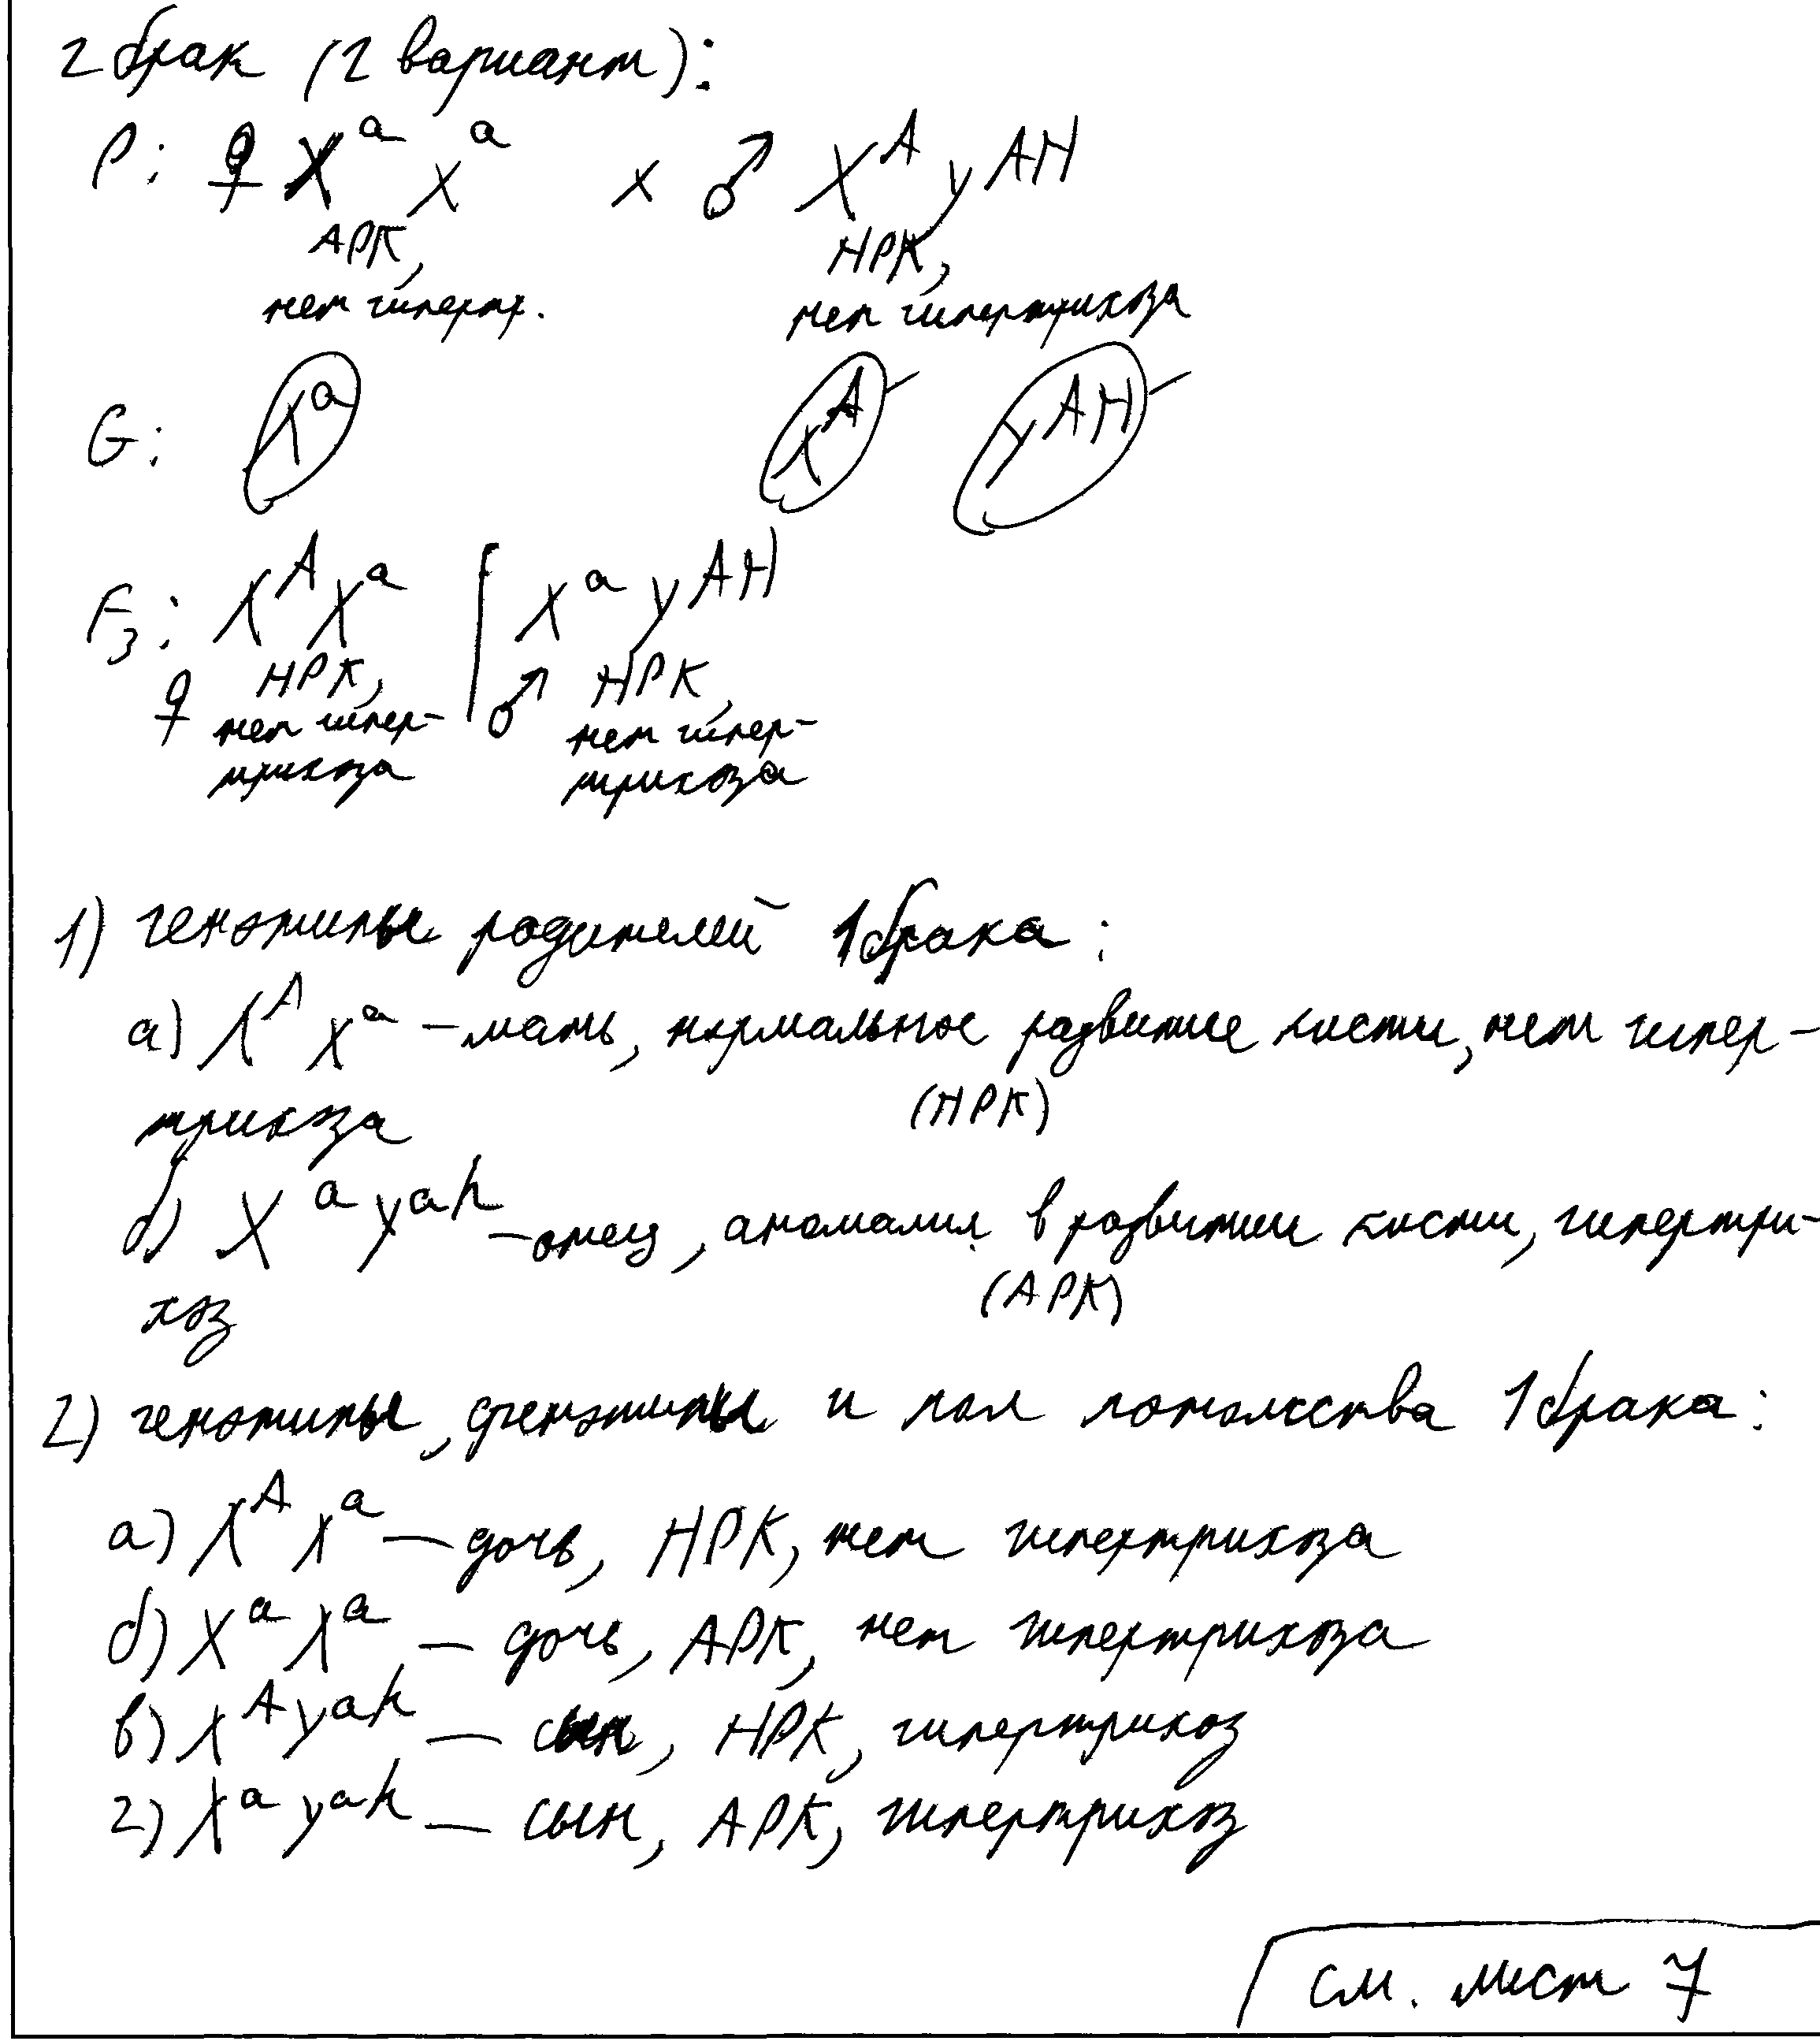 2 брак (2 вариант):
P: ♀ XᵃXᵃ x ♂ Xᴬyᴬᴴ
АРК, НРК,
нет гиперт. нет гипертрихоза
G: Xᵃ Xᴬ Yᴬᴴ
F₃: XᴬXᵃ | Xᵃyᴬᴴ
♀ НРК, ♂ НРК,
нет гипер- нет гипер-
трихоза трихоза
1) генотипы родителей 1 брака:
а) XᴬXᵃ – мать, нормальное развитие кисти, нет гипер-
(НРК)
трихоза
б) Xᵃyᵃʰ – отец, аномалия в развитии кисти, гипертри-
(АРК)
хоз
2) генотипы, фенотипы и пол потомства 1 брака:
а) XᴬXᵃ – дочь, НРК, нет гипертрихоза
б) XᵃXᵃ – дочь, АРК, нет гипертрихоза
в) Xᴬyᵃʰ – сын, НРК, гипертрихоз
г) Xᵃyᵃʰ – сын, АРК, гипертрихоз
см. лист 7